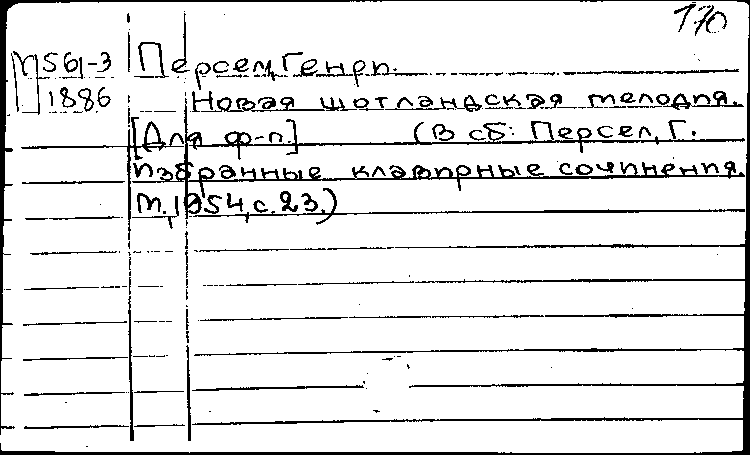 170
М561-3 Персел, Генри.
1886 Новая шотландская мелодия.
[Для ф-п.] (В сб: Персел, Г.
Избранные клавирные сочинения.
М., 1954, с. 23.)